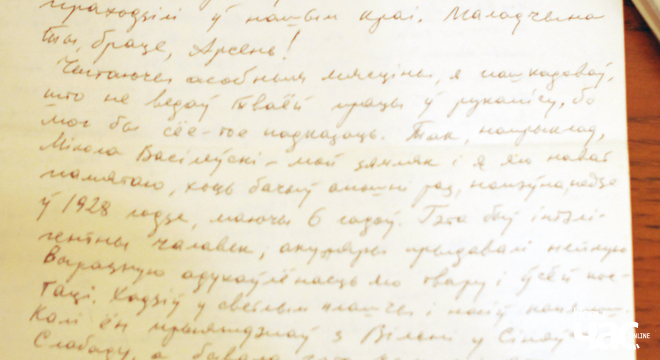 праходзілі ў нашым краі. Маладчына
ты, браце, Арсень!
Чытаючы асобныя мясціны, я пашкадаваў,
што не ведаў тваёй працы ў рукапісу, бо
мог бы сёе-тое падказаць. Так, напрыклад,
Мікола Васілеўскі – мой зямляк і я яго нават
памятаю, хоць бачыў апошні раз, напэўна, недзе
ў 1928 годзе, маючы 6 гадоў. Гэта быў інтэлі-
гентны чалавек; акуляры прыдавалі нейкую
выразную адукаванасць яго твару і ўсёй пос-
таці. Хадзіў у светлым плашчы і насіў
Калі ён прыязджаў з Вільні у
Слабаду, а бывала
ONLINE